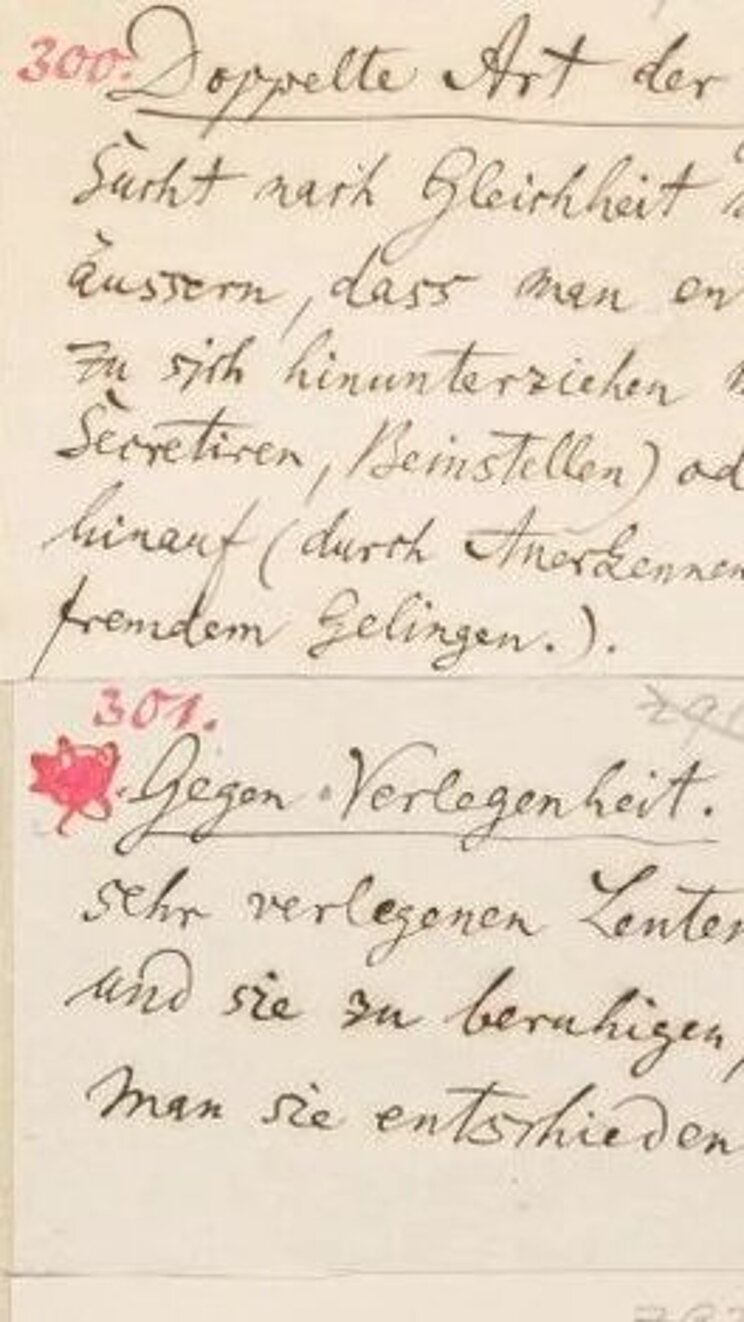 300. Doppelte Art der
Sucht nach Gleichheit
äussern, dass man en
zu sich hinunterziehen
Secretiren, Beinstellen) od
hinauf (durch Anerkennen
fremdem Gelingen.).
301.
Gegen Verlegenheit.
sehr verlegenen Leuten
und sie zu beruhigen,
man sie entschieden